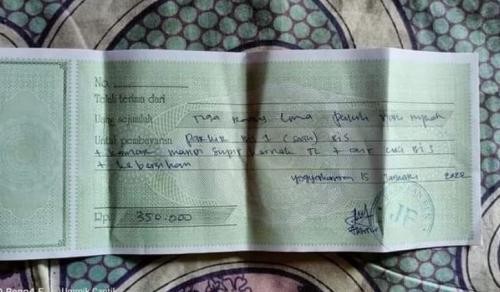 No.
Telah terima dari
Uang sejumlah Tiga Ratus Lima Puluh Ribu Rupiah
Untuk pembayaran Parkir Bis 1 (satu) Bis
+ kamar mandi supir kernet TL + air cuci Bis
+ kebersihan
Yogyakarta 15 Januari
Rp. 350.000
JF